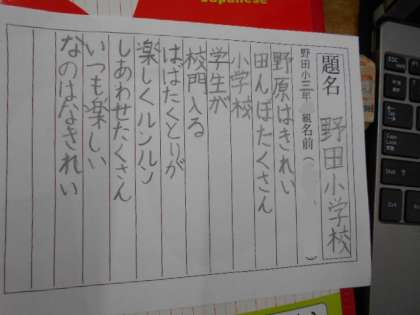 Japanese
題名 野田小学校
野田小 年 組名前( )
野原はきれい
田んぼたくさん
小学校
学生が
校門入る
はばたくとりが
楽しくルンルン
しあわせたくさん
いつも楽しい
なのはなきれい